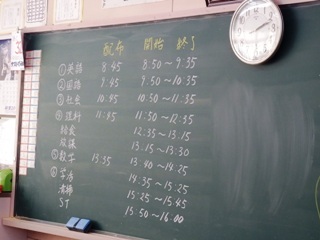 配布 開始 終了
①英語 8:45 8:50～9:35
②国語 9:45 9:50～10:35
③社会 10:45 10:50～11:35
④理科 11:45 11:50～12:35
給食 12:35～13:15
放議 13:15～13:30
⑤数学 13:35 13:40～14:25
⑥学活 14:35～15:25
清掃 15:25～15:45
ST 15:50～16:00